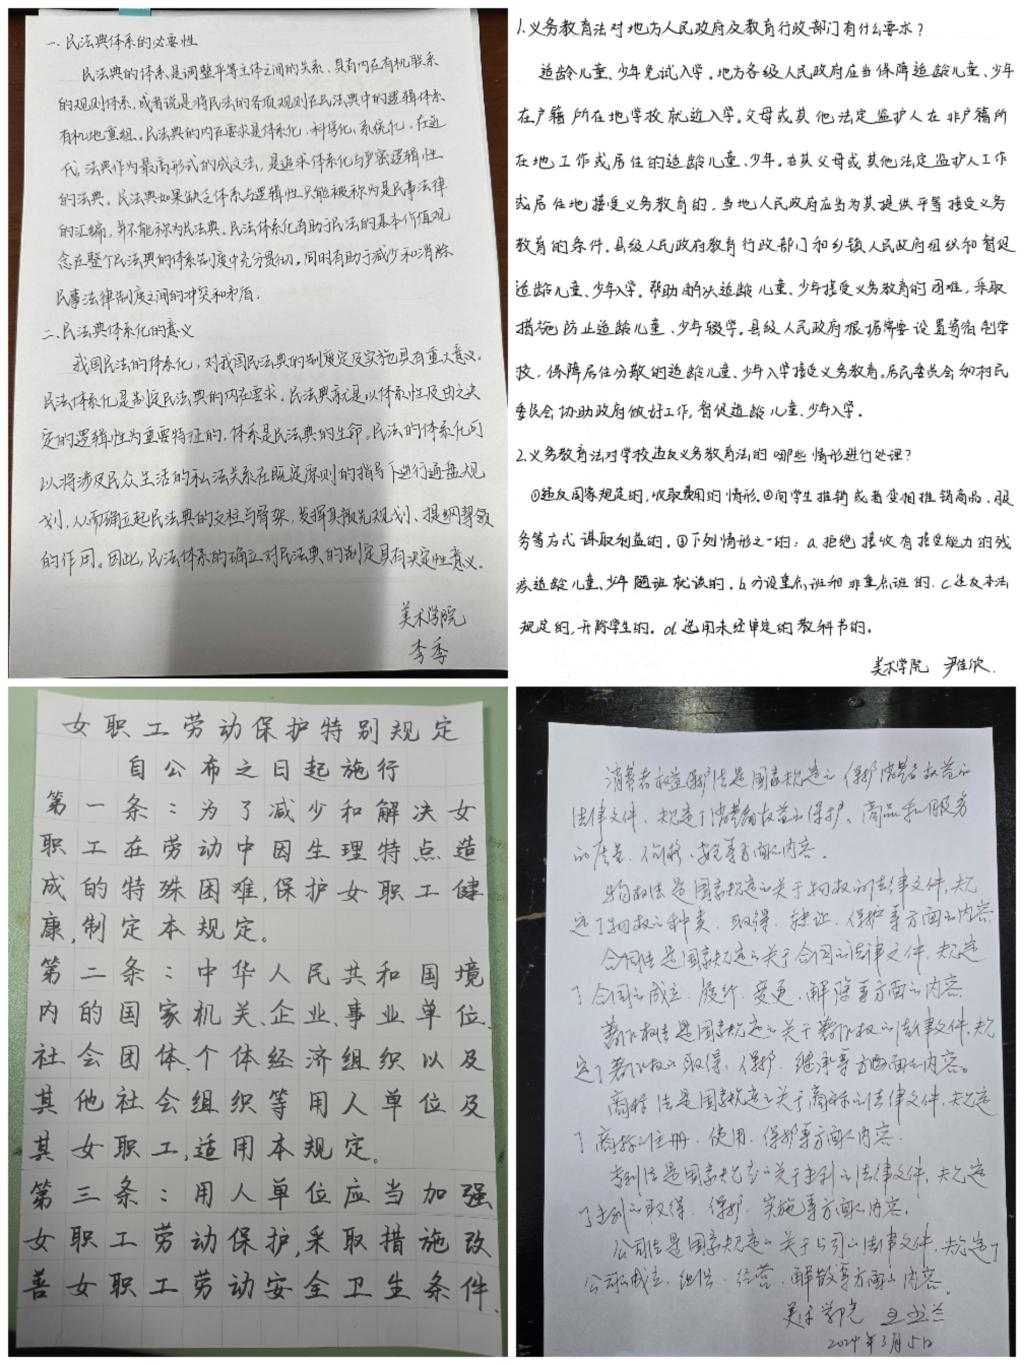 一.民法典体系的必要性
民法典的体系是调整平等主体之间的关系,具有内在有机联系
的规则体系,或者说是将民法的各项规则在民法典中的逻辑体系
有机地重组。民法典的内在要求是体系化,科学化,系统化,在近
代,法典作为最高形式的成文法,是追求体系化与严密逻辑性
的法典。民法典如果缺乏体系与逻辑性只能被称为是民事法律
的汇编,并不能称为民法典。民法体系化有助于民法的基本价值观
念在整个民法典的体系制度中充分贯彻。同时有助于减少和消除
民事法律制度之间的冲突和矛盾。
二.民法典体系化的意义
我国民法的体系化,对我国民法典的制度定及实施具有重大意义。
民法体系化是制定民法典的内在要求。民法典就是以体系性及由之决
定的逻辑性为重要特征的,体系是民法典的生命。民法的体系化可
以将涉及民众生活的私法关系在既定原则的指导下进行通盘规
划,从而确立起民法典的支柱与骨架,发挥其预先规划、提纲挈领
的作用。因此,民法体系的确立对民法典的制定具有决定性意义。
美术学院
李季
1.义务教育法对地方人民政府及教育行政部门有什么要求?
适龄儿童、少年免试入学。地方各级人民政府应当保障适龄儿童、少年
在户籍所在地学校就近入学。父母或其他法定监护人在非户籍所
在地工作或居住的适龄儿童、少年。在其父母或其他法定监护人工作
或居住地接受义务教育的,当地人民政府应当为其提供平等接受义务
教育的条件。县级人民政府教育行政部门和乡镇人民政府组织和督促
适龄儿童、少年入学。帮助解决适龄儿童、少年接受义务教育的困难,采取
措施防止适龄儿童、少年辍学。县级人民政府根据需要设置寄宿制学
校,保障居住分散的适龄儿童、少年入学接受义务教育。居民委员会和村民
委员会协助政府做好工作,督促适龄儿童、少年入学。
2.义务教育法对学校违反义务教育法的哪些情形进行处理?
①违反国家规定的,收取费用的情形。②向学生推销或者变相推销商品、服
务等方式谋取利益的。③下列情形之一的:a.拒绝接收有接受能力的残
疾适龄儿童、少年随班就读的。b.分设重点班和非重点班的。c.违反本法
规定的,开除学生的。d.选用未经审定的教科书的。
美术学院 尹佳欣
女职工劳动保护特别规定
自公布之日起施行
第一条:为了减少和解决女
职工在劳动中因生理特点造
成的特殊困难,保护女职工健
康,制定本规定。
第二条:中华人民共和国境
内的国家机关、企业、事业单位、
社会团体、个体经济组织以及
其他社会组织等用人单位及
其女职工,适用本规定。
第三条:用人单位应当加强
女职工劳动保护,采取措施改
善女职工劳动安全卫生条件.
消费者权益保护法是国家规定的保护消费者权益的
法律文件,规定了消费者权益的保护、商品和服务
的质量、价格、安全等方面的内容。
物权法是国家规定的关于物权的法律文件,规
定了物权的种类、取得、转让、保护等方面的内容.
合同法是国家规定的关于合同的法律文件,规定
了合同的成立、履行、变更、解除等方面的内容.
著作权法是国家规定的关于著作权的法律文件,规
定了著作权的取得、保护、继承等方面的内容。
商标法是国家规定的关于商标的法律文件,规定
了商标的注册、使用、保护等方面的内容.
专利法是国家规定的关于专利的法律文件,规定
了专利的取得、保护、实施等方面的内容.
公司法是国家规定的关于公司的法律文件,规定了
公司的成立、组织、经营、解散等方面的内容.
美术学院
2024年3月15日